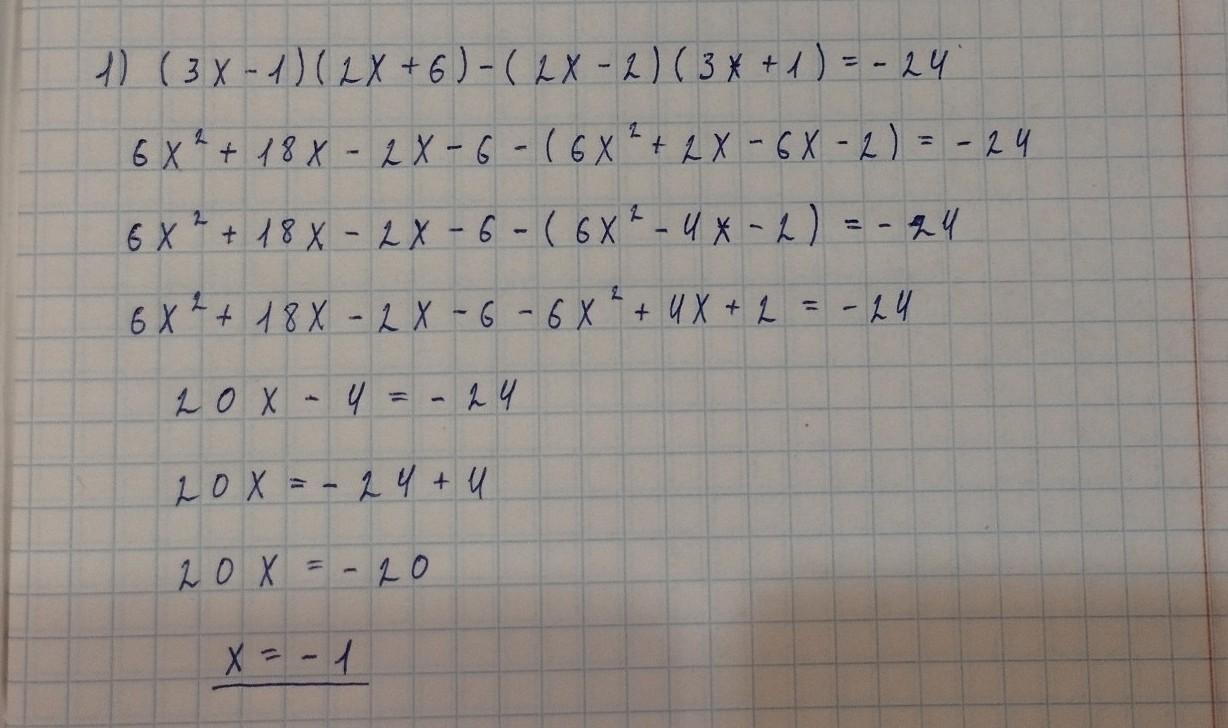 1) (3x - 1)(2x + 6) - (2x - 2)(3x + 1) = - 24
6x² + 18x - 2x - 6 - (6x² + 2x - 6x - 2) = - 24
6x² + 18x - 2x - 6 - (6x² - 4x - 2) = - 24
6x² + 18x - 2x - 6 - 6x² + 4x + 2 = - 24
20x - 4 = - 24
20x = - 24 + 4
20x = - 20
x = - 1